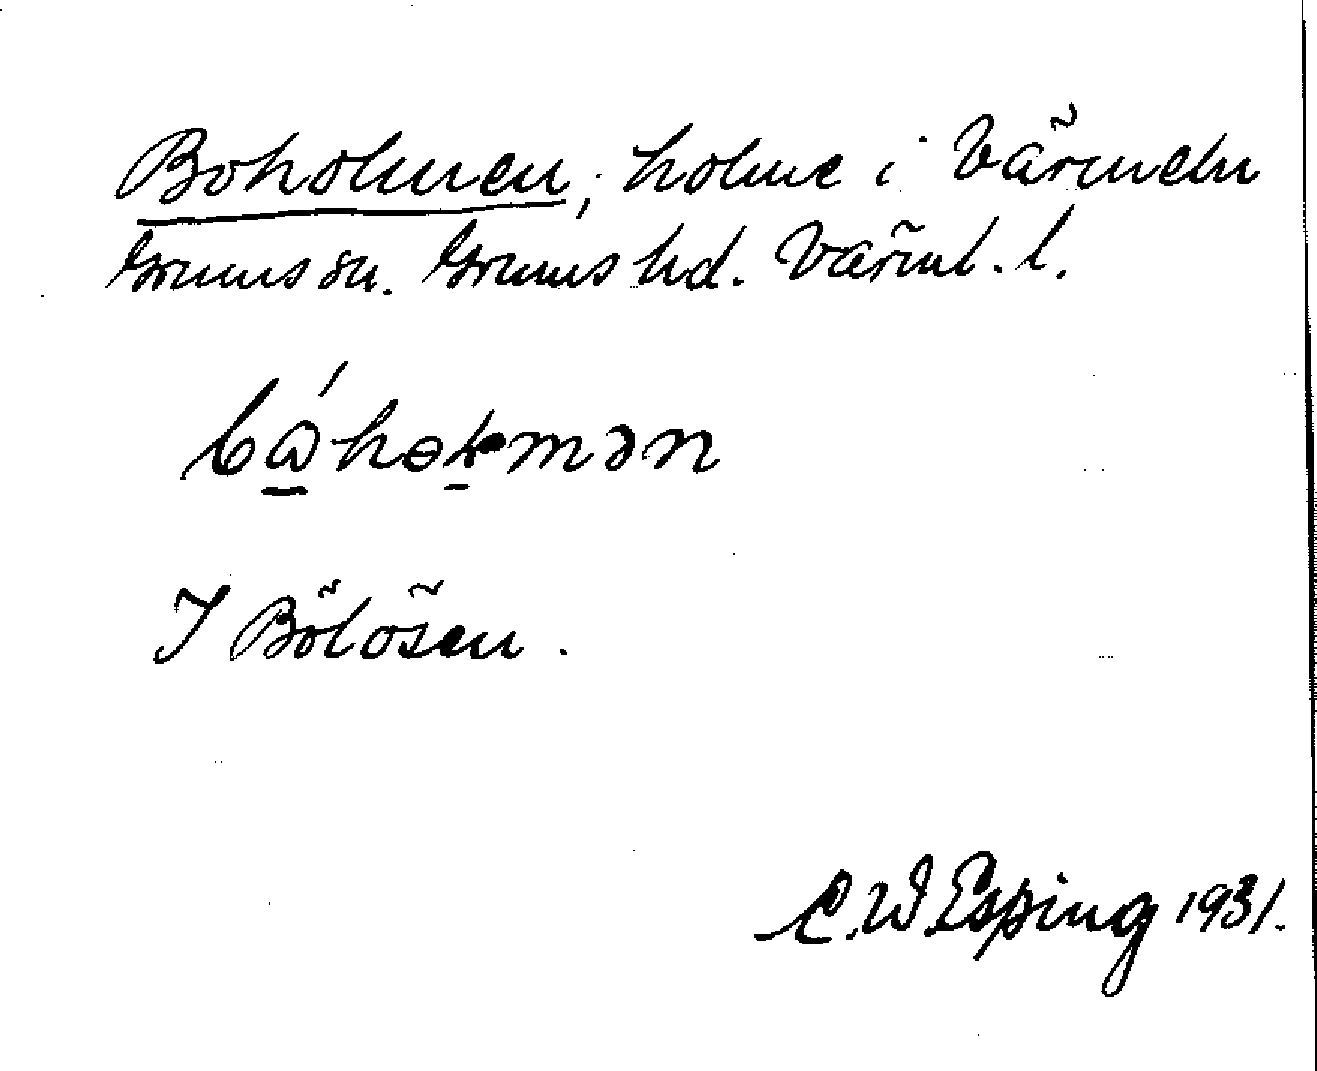 Boholmen, holme i Värmeln
Grums sn. Grums hd. Värml. l.
I Bölösen.
C. W Esping 1931.